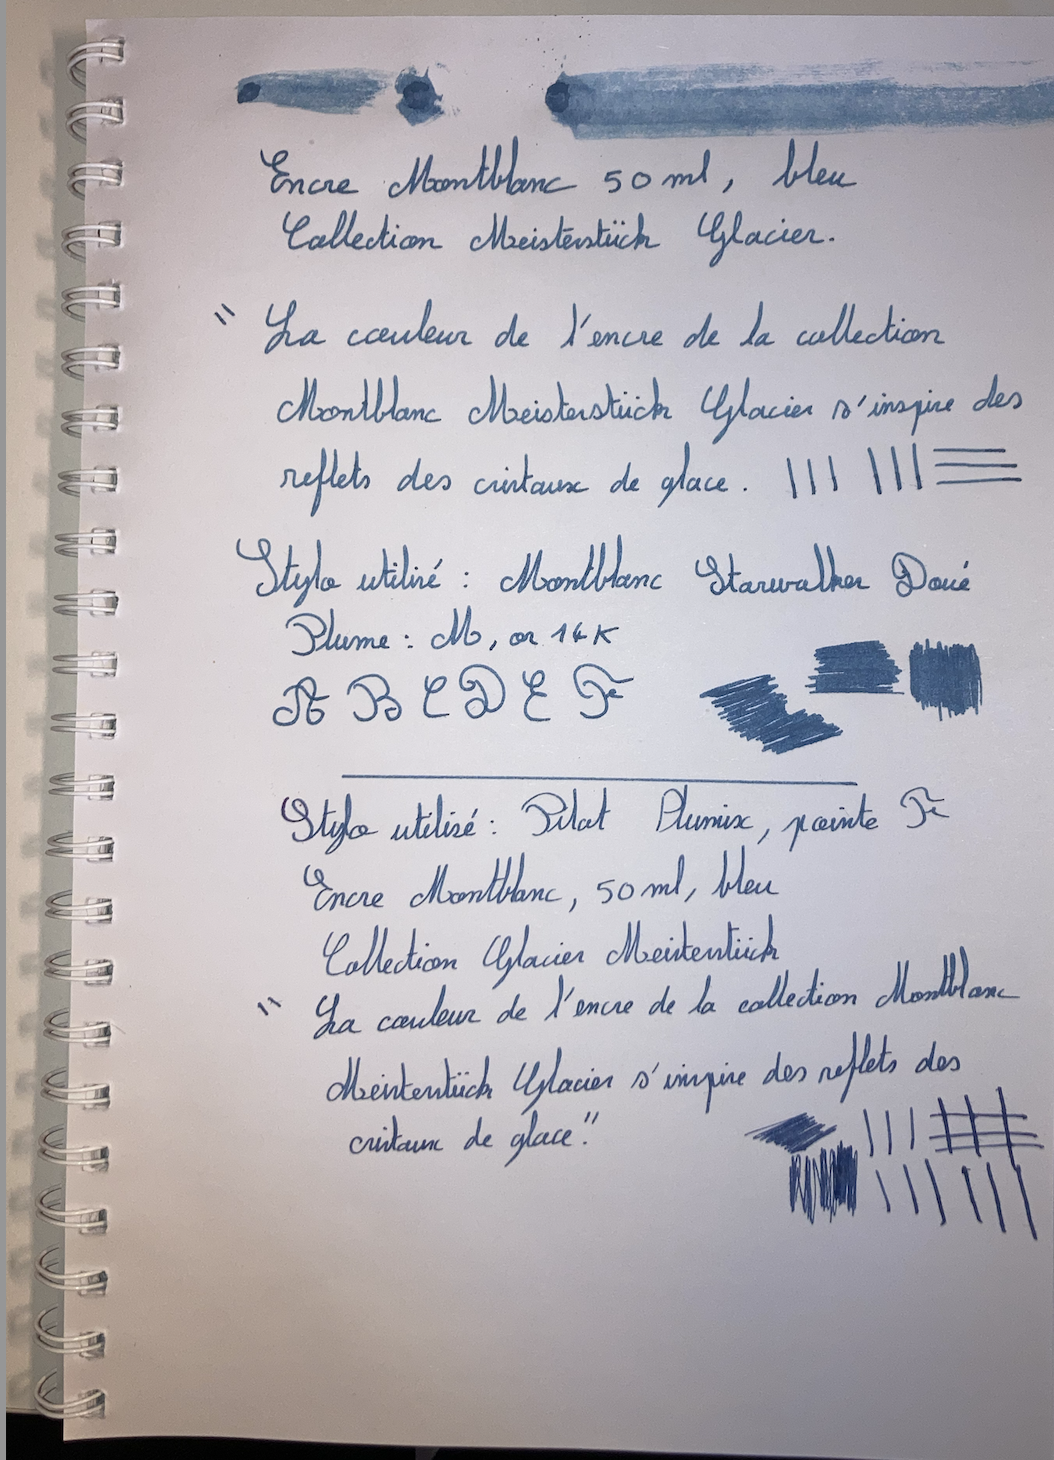 Encre Montblanc 50 ml, bleu
Collection Meisterstück Glacier.
" La couleur de l'encre de la collection
Montblanc Meisterstück Glacier s'inspire des
reflets des cristaux de glace.
Stylo utilisé : Montblanc Starwalker Doué
Plume : M, or 14K
A B C D E F
Stylo utilisé : Pilot Plumix, pointe F
Encre Montblanc, 50 ml, bleu
Collection Glacier Meisterstück
" La couleur de l'encre de la collection Montblanc
Meisterstück Glacier s'inspire des reflets des
cristaux de glace."